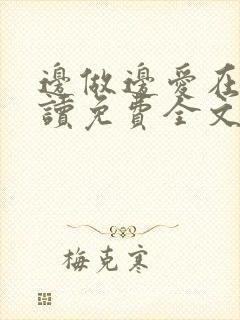 邊做邊愛在
讀免費全文
梅克寒